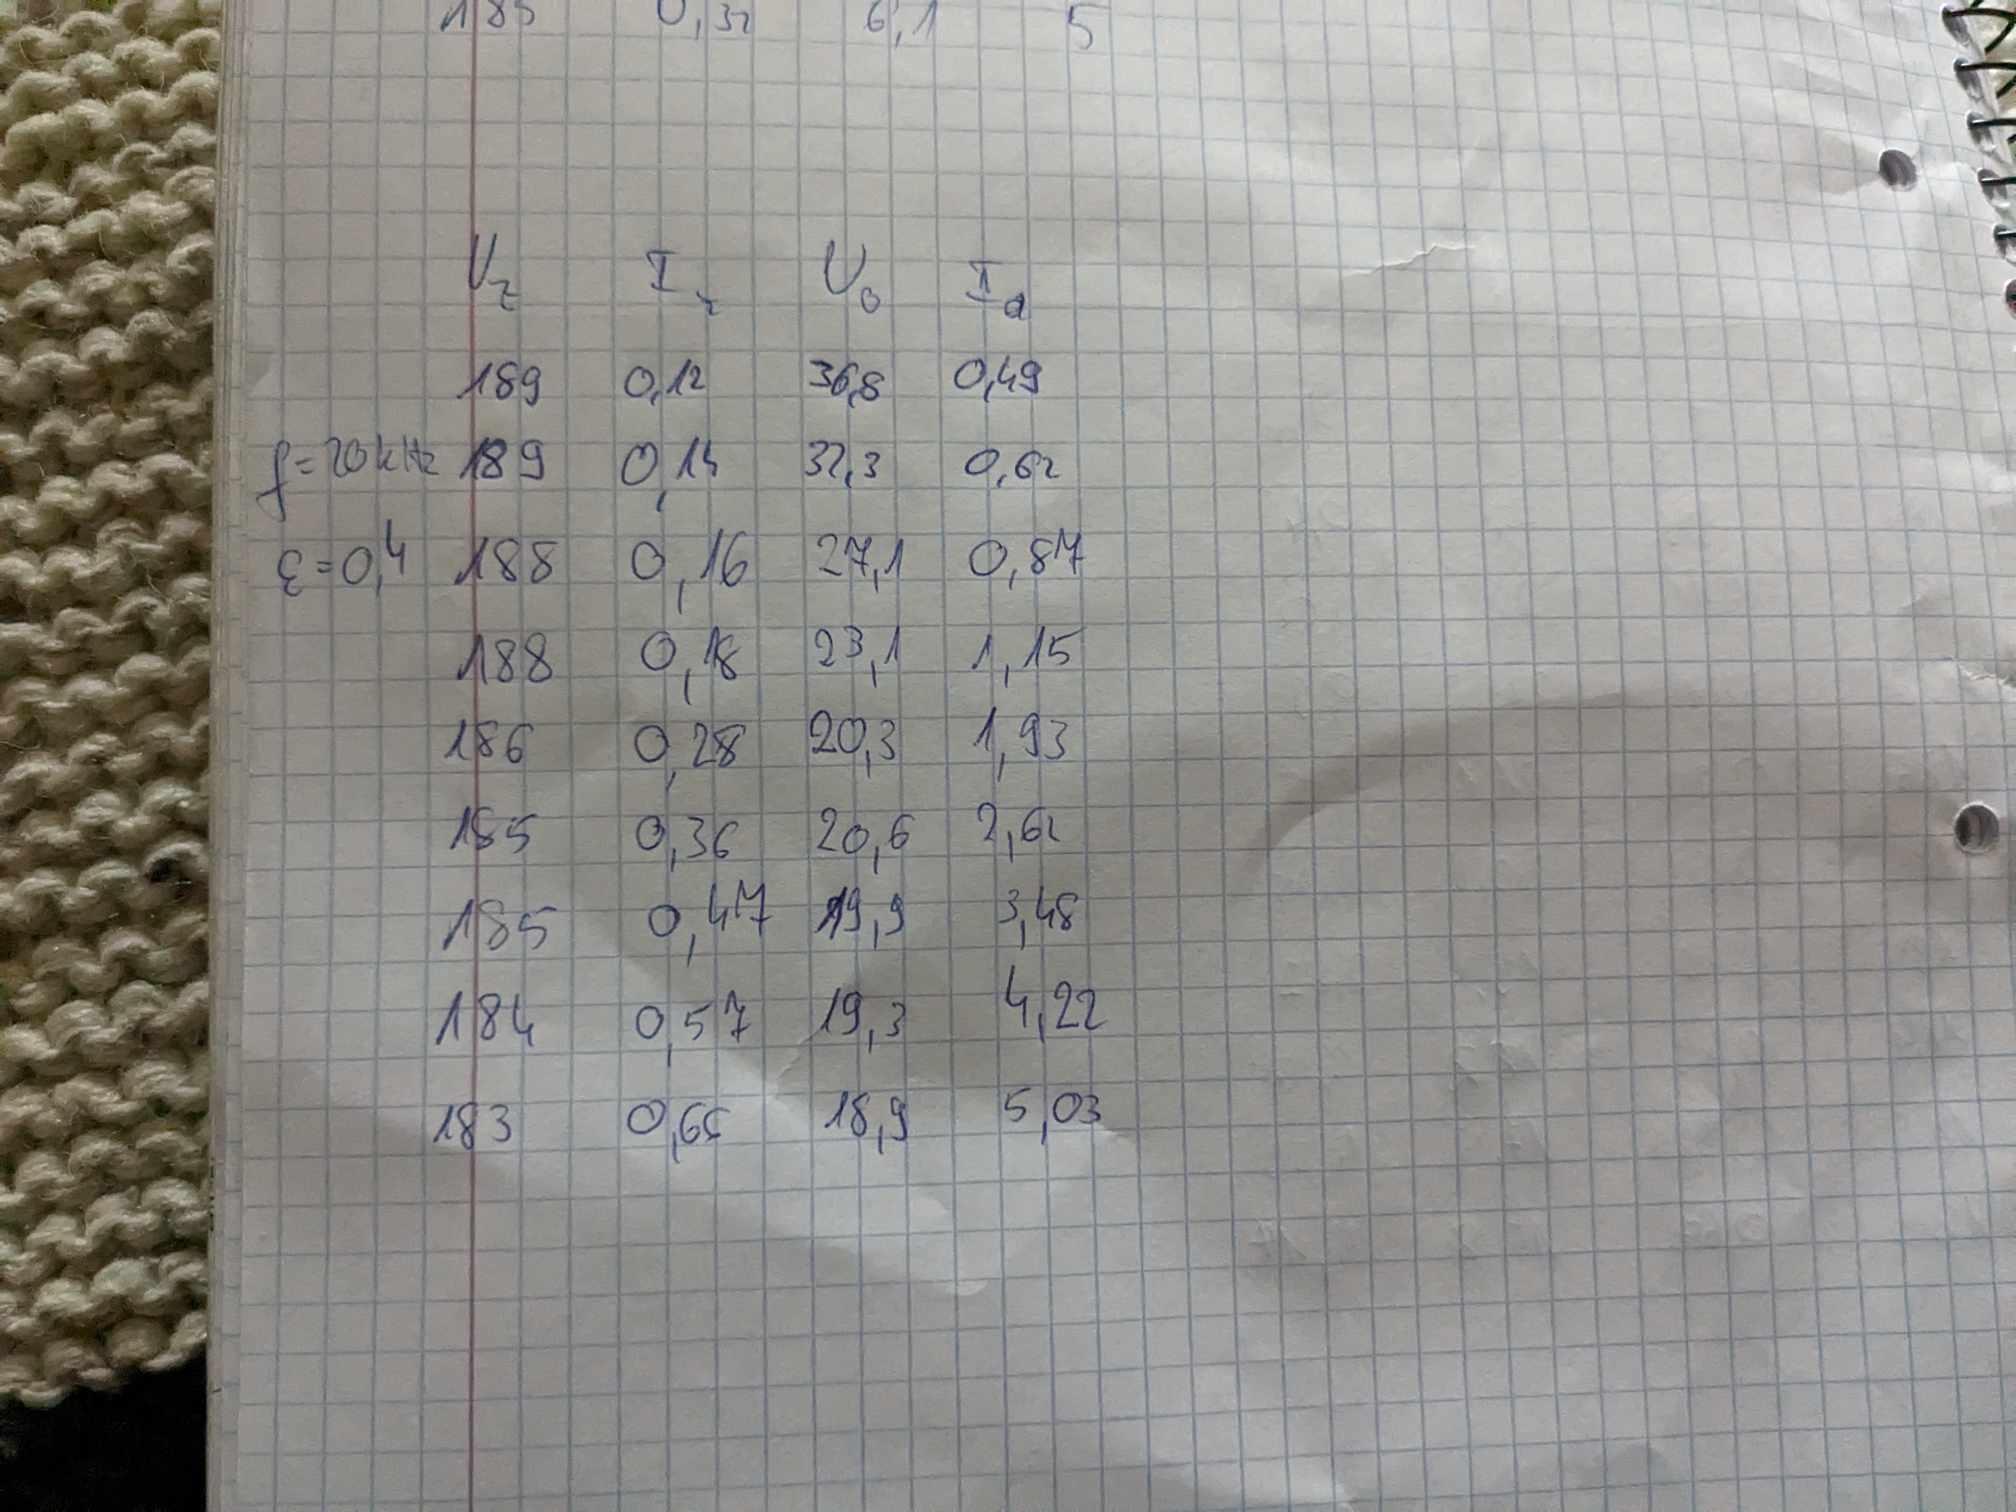 185 0,32 6,1 5
U_z I_z U_o I_d
189 0,12 36,8 0,49
f=20kHz 189 0,14 32,3 0,62
ε=0,4 188 0,16 27,1 0,87
188 0,18 23,1 1,15
186 0,28 20,3 1,93
185 0,36 20,6 2,62
185 0,47 19,9 3,48
184 0,57 19,3 4,22
183 18,9 5,03